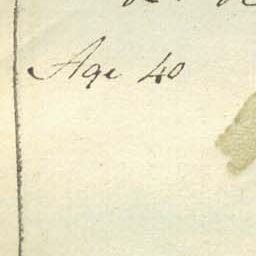 Age 40